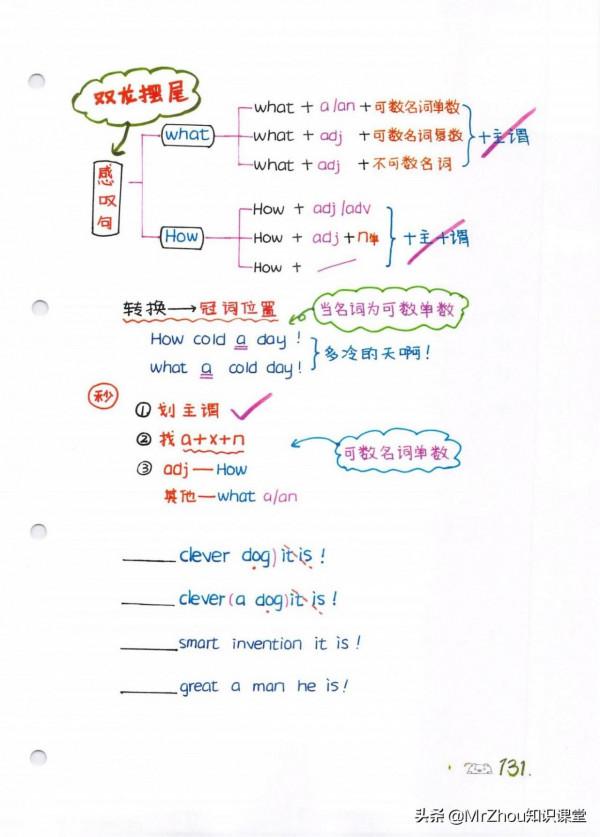 双龙摆尾
感叹句
what
what + a/an + 可数名词单数
what + adj + 可数名词复数
what + adj + 不可数名词
+主谓
How
How + adj/adv
How + adj + n单
How +
+主+谓
转换→冠词位置
当名词为可数单数
How cold a day!
what a cold day!
多冷的天啊!
秒
① 划主谓
② 找a+x+n
可数名词单数
③ adj—How
其他—what a/an
______ clever dog)it is!
______ clever(a dog)it is!
______ smart invention it is!
______ great a man he is!
131.
头条 @MrZhou知识课堂